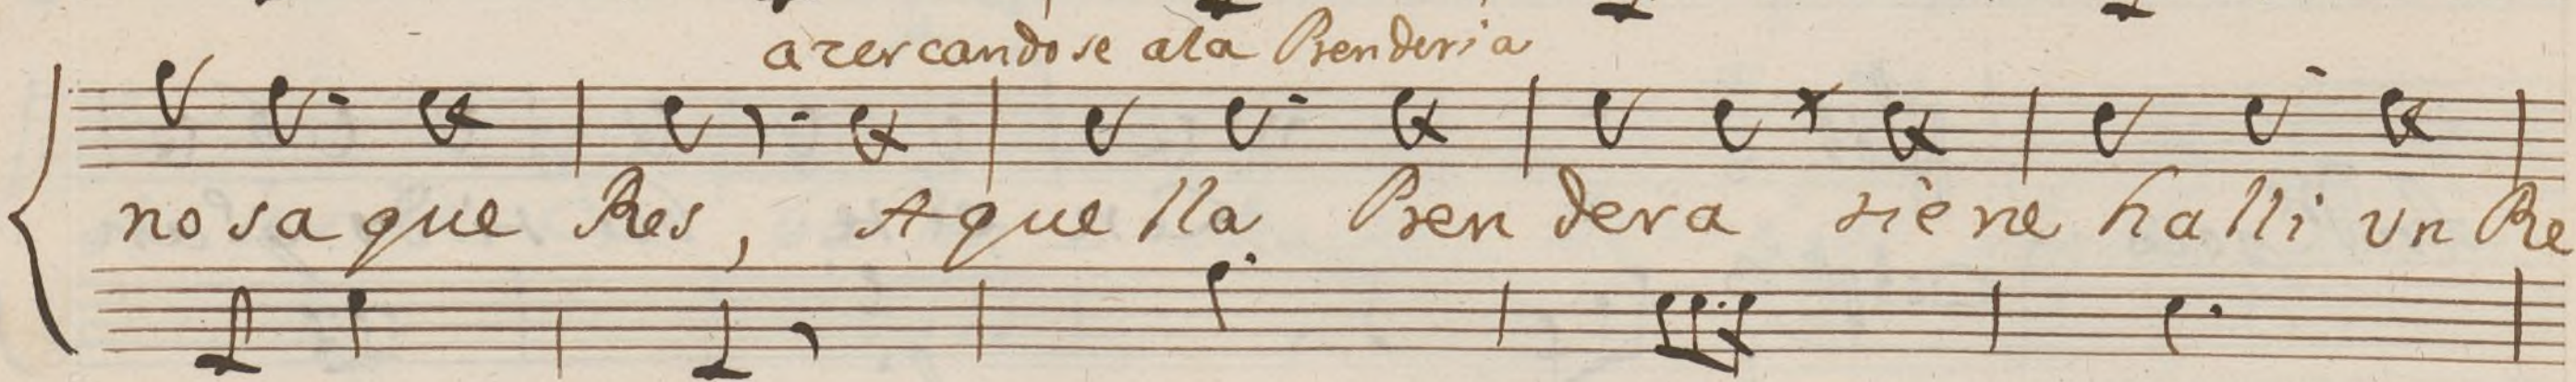 azercandose ala Prenderia
no sa que Res, Aque lla Pren dera tiene halli vn Re